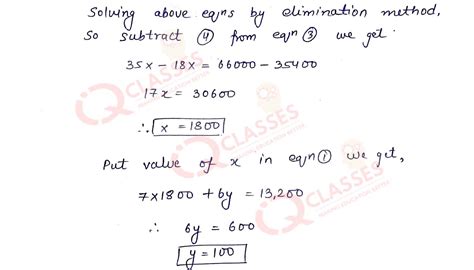 Solving above eqns by elimination method.
So subtract ④ from eqn ③ we get.
35x - 18x = 66000 - 35400
17x = 30600
∴ x = 1800
Put value of x in eqn ① we get,
7×1800 + 6y = 13,200
∴ 6y = 600
y = 100
IQ CLASSES
IQ CLASSES
IQ CLASSES